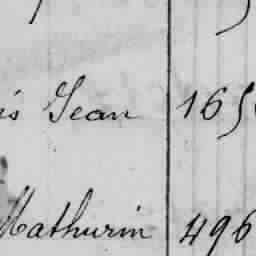 is Jean 165
Mathurin 496